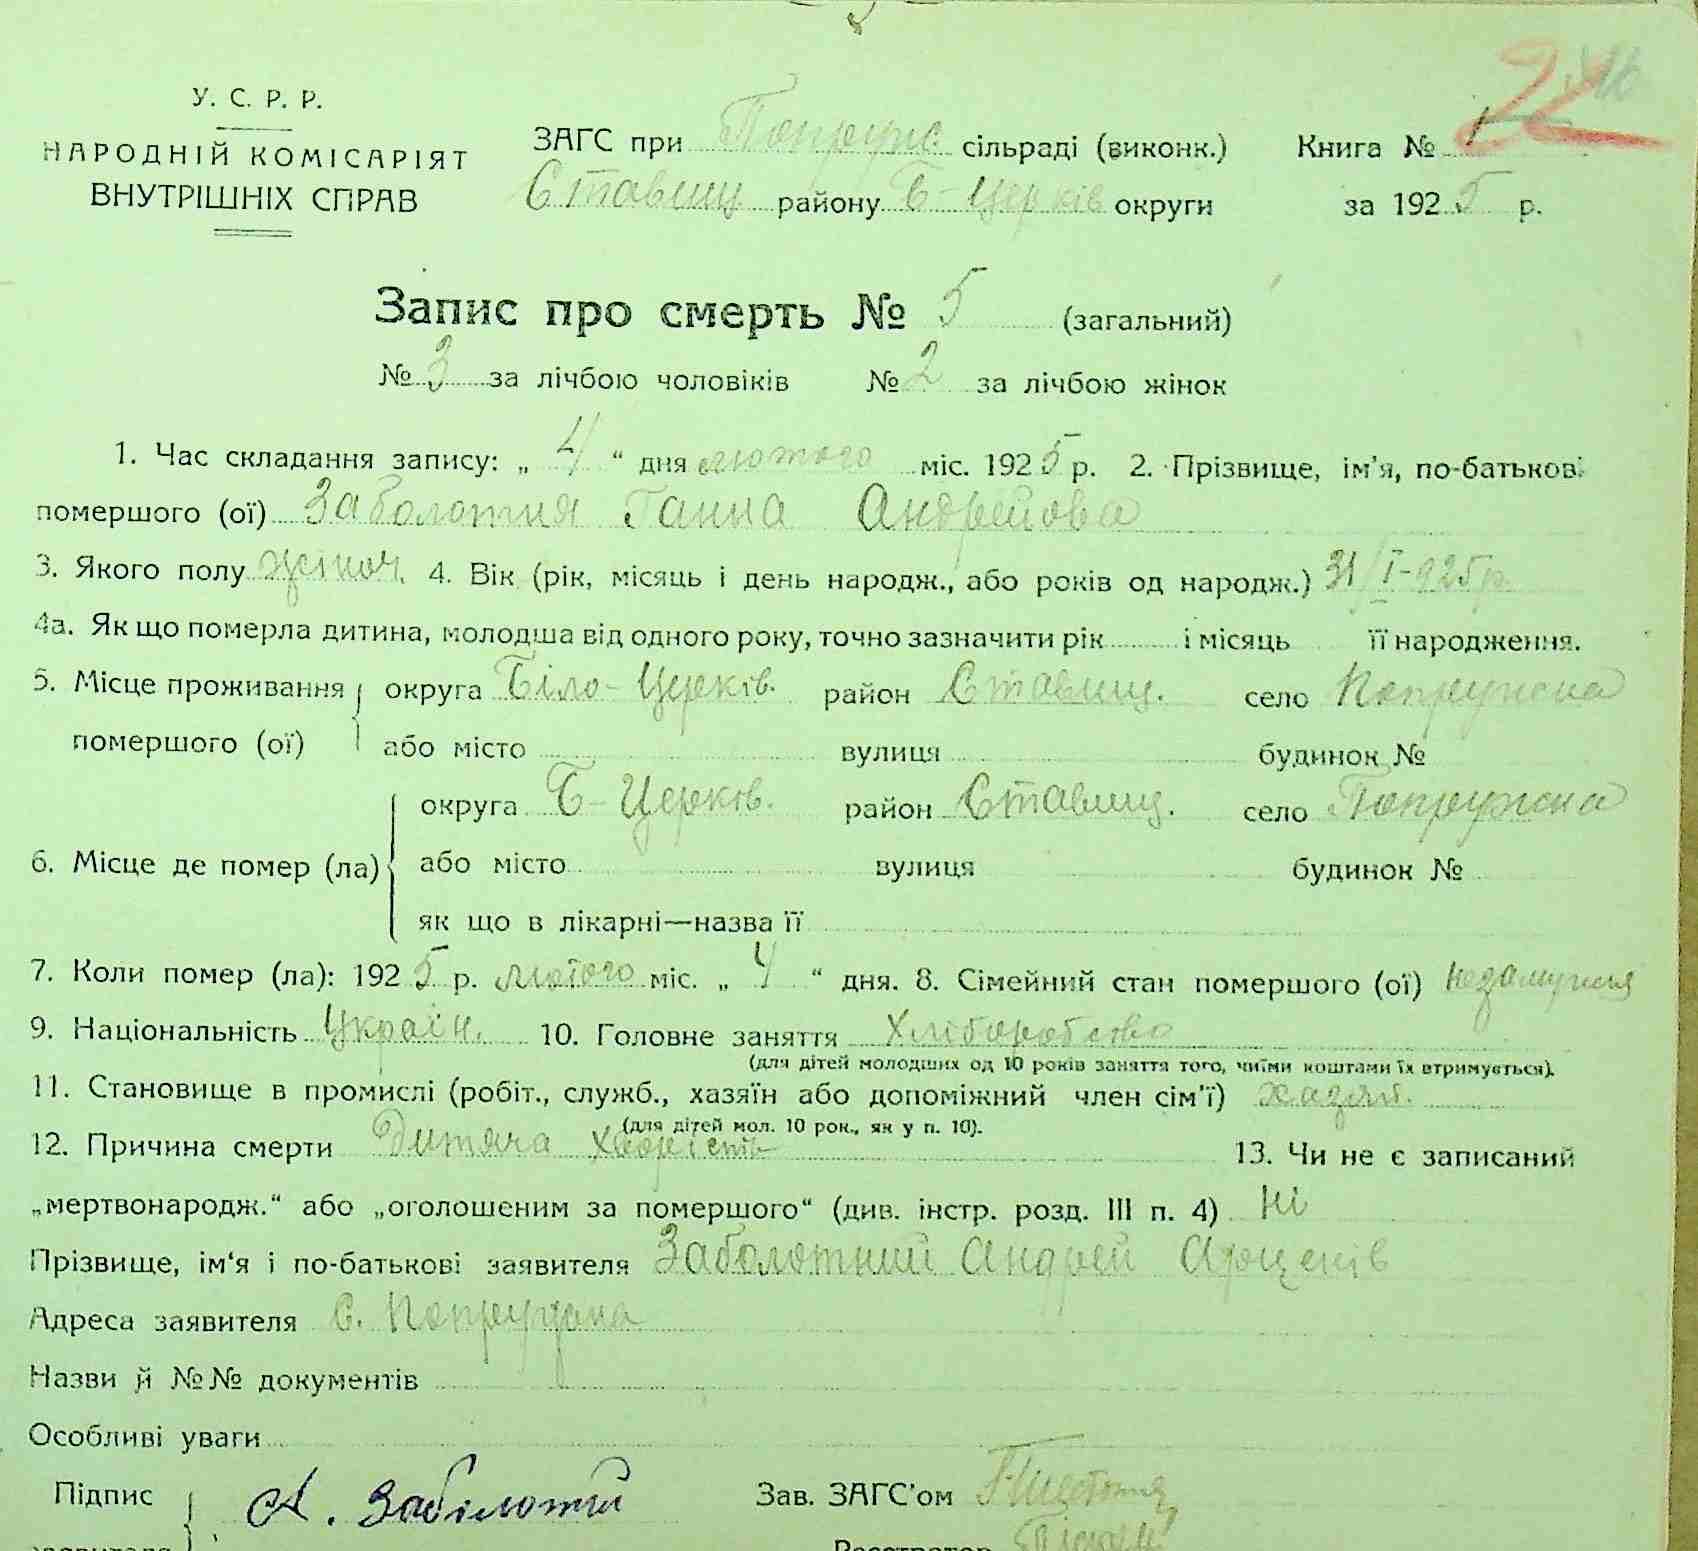 22
У. С. Р. Р.
НАРОДНІЙ КОМІСАРІЯТ
ВНУТРІШНІХ СПРАВ
ЗАГС при Попруж. сільраді (виконк.) Книга № 1
Ставищ району Б-Церків округи за 1925 р.
Запис про смерть № 5 (загальний)
№ 3 за лічбою чоловіків № 2 за лічбою жінок
1. Час складання запису: „ 4 “ дня лютого міс. 1925 р. 2. Прізвище, ім'я, по-батькові
помершого (ої) Заболотня Ганна Андрейова
3. Якого полу жіноч. 4. Вік (рік, місяць і день народж., або років од народж.) 31/I-925 р.
4а. Як що померла дитина, молодша від одного року, точно зазначити рік і місяць її народження.
5. Місце проживання округа Біло-Церків. район Ставищ. село Попружна
помершого (ої) або місто вулиця будинок №
округа Б-Церків. район Ставищ. село Попружна
6. Місце де помер (ла) або місто вулиця будинок №
як що в лікарні—назва її
7. Коли помер (ла): 1925 р. лютого міс. „ 4 “ дня. 8. Сімейний стан помершого (ої) незамужня
9. Національність Україн. 10. Головне заняття Хліборобство
(для дітей молодших од 10 років заняття того, чиїми коштами їх втримується).
11. Становище в промислі (робіт., служб., хазяїн або допоміжний член сім'ї) хазяй.
(для дітей мол. 10 рок., як у п. 10).
12. Причина смерти Дитяча хворість 13. Чи не є записаний
„мертвонародж.“ або „оголошеним за помершого“ (див. інстр. розд. III п. 4) Ні
Прізвище, ім'я і по-батькові заявителя Заболотний Андрей
Адреса заявителя с. Попружна
Назви й №№ документів
Особливі уваги
Підпис А. Заболотній Зав. ЗАГС'ом
заявителя Реєстратор